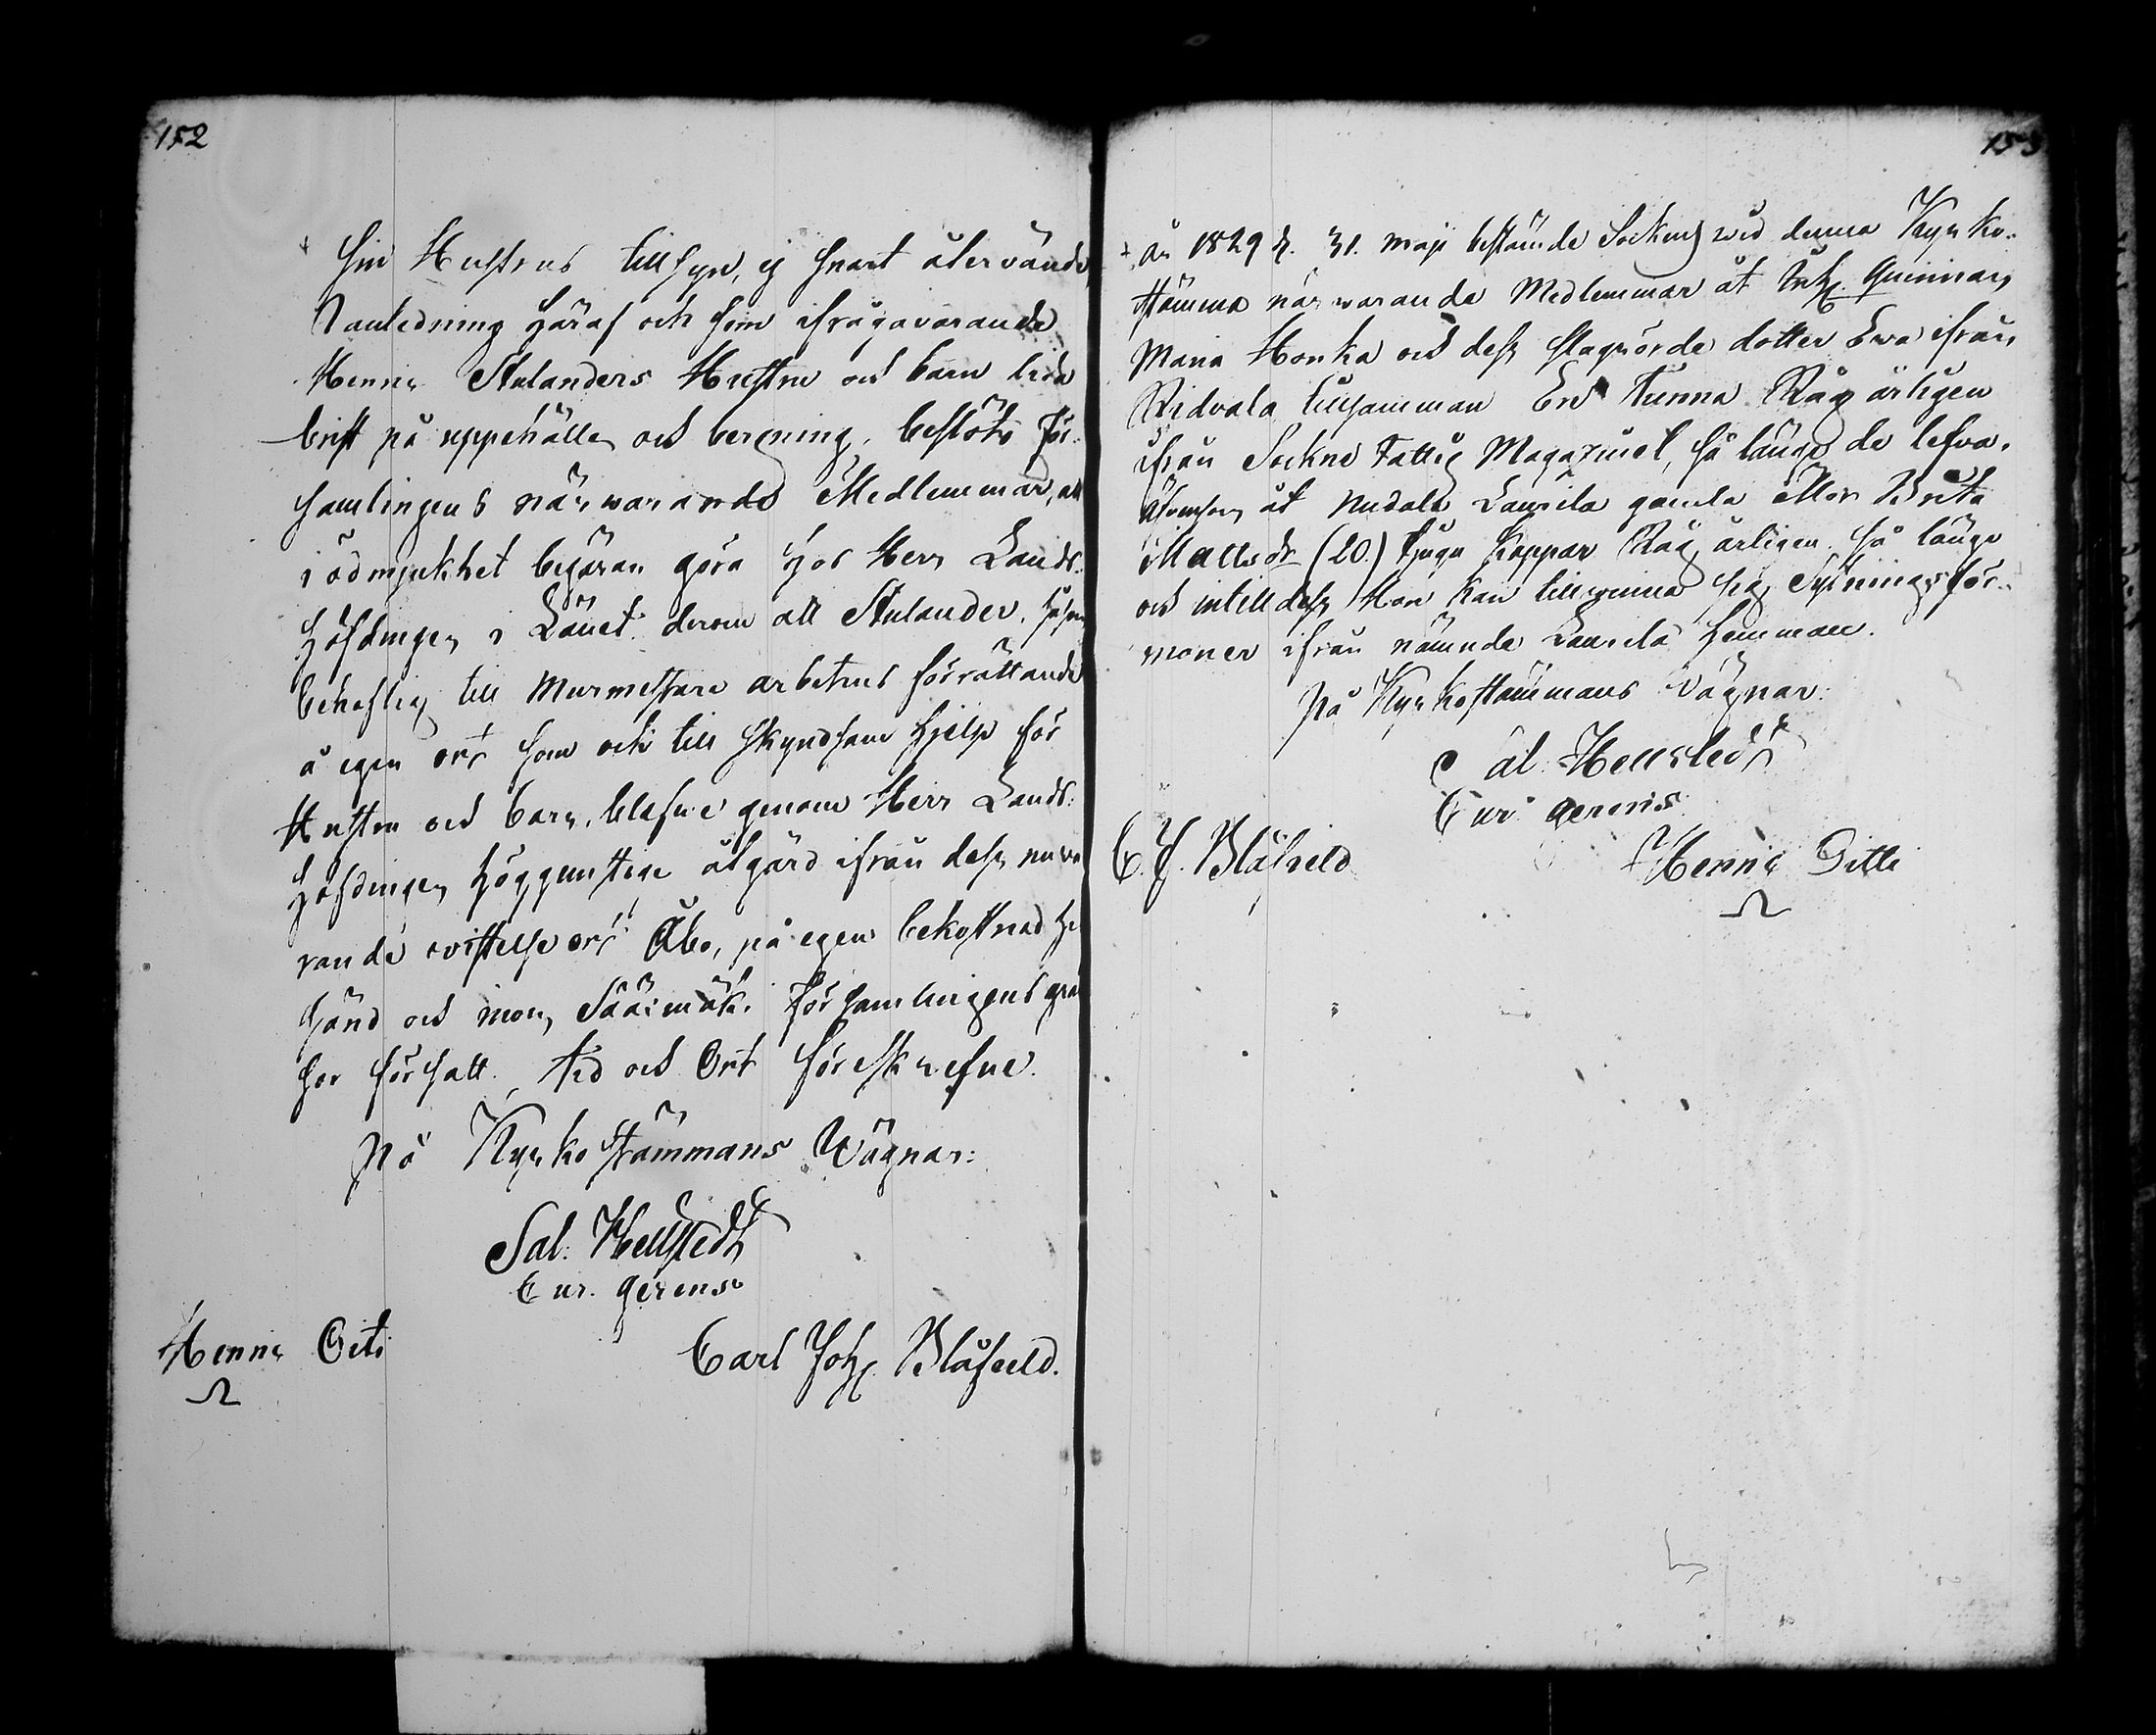 152
sin Hustrus tillsyn, ej snart återvände,
I anledning häraf och som ifrågavarande
Henric Stulanders Hustru och barn lida
brist på uppehälle och bergning, beslöts För-
samlingens närwarande Medlemmar, att
i ödmjukhet begäran göra hos Herr Lands-
höfdingen i Länet derom att Stulander, såsom
behöflig till Murmestare arbetens förrättande
å egen ort som och till skyndsam hjelp för
Hustru och barn, blefve genom Herr Lands-
höfdingens höggunstige åtgärd ifrån dess nuva-
rande vistelse ort Åbo, på egen bekostnad
händ och inom Sääxmäki Församlingens grän
sor försatt. Tid och Ort föreskrefne.
På Kyrkostämmans Wägnar:
Sal. Hellstedt
Cur. gerens
Henric Oiti
Carl Joh. Blåfield.
153
År 1829 d. 31. Maji bestämde Sockens wid denna Kyrko-
stämma närwarande Medlemmar åt Enk. Quinnan
Maria Honka och dess slagrörde dotter Ewa ifrån
Ridvala tillsamman En Tunna Råg årligen
ifrån Sockne Fattig Magazinet, så länge de lefva.
Äfvensom åt Laurila gamla Mor Brita
Mattsdr (20.) tjugu Kappar Råg årligen så länge
och intill dess Hon kan tillvinna sig Sytningsför-
moner ifrån nämnde Laurila hemman.
På Kyrkostämmans Vägnar:
Sal. Hellstedt
Cur. gerens
C. J. Blåfield
Henric Oitti